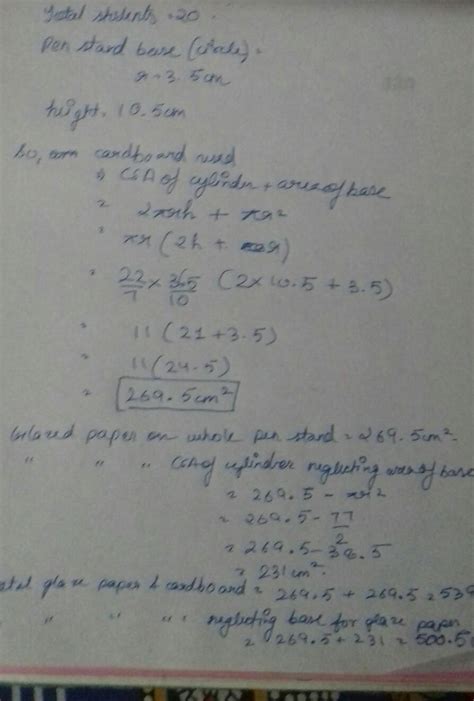 Total students = 20.
Pen stand base (circle) =
r = 3.5cm
height = 10.5cm
So, cardboard used
⇒ CSA of cylinder + area of base
= 2πrh + πr²
= πr (2h + r)
= 22/7 × 35/10 (2×10.5 + 3.5)
= 11 (21 + 3.5)
= 11 (24.5)
= 269.5 cm²
Glazed paper on whole pen stand = 269.5cm².
" " " CSA of cylinder neglecting area of base
= 269.5 - πr²
= 269.5 - 77/2
= 269.5 - 38.5
= 231 cm².
glaze paper & cardboard = 269.5 + 269.5 = 539
" " " neglecting base for glaze paper
= 269.5 + 231 = 500.5